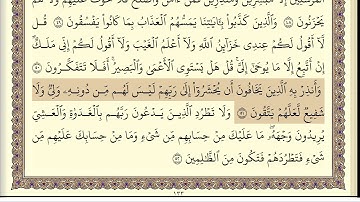 يَحْزَنُونَ ٤٨ وَالَّذِينَ كَذَّبُوا۟ بِـَٔايَـٰتِنَا يَمَسُّهُمُ الْعَذَابُ بِمَا كَانُوا۟ يَفْسُقُونَ ٤٩ قُل
لَّآ أَقُولُ لَكُمْ عِندِى خَزَآئِنُ اللَّهِ وَلَآ أَعْلَمُ الْغَيْبَ وَلَآ أَقُولُ لَكُمْ إِنِّى مَلَكٌ
إِنْ أَتَّبِعُ إِلَّا مَا يُوحَىٰٓ إِلَىَّ قُلْ هَلْ يَسْتَوِى الْأَعْمَىٰ وَالْبَصِيرُ أَفَلَا تَتَفَكَّرُونَ ٥٠
وَأَنذِرْ بِهِ الَّذِينَ يَخَافُونَ أَن يُحْشَرُوٓا۟ إِلَىٰ رَبِّهِمْ لَيْسَ لَهُم مِّن دُونِهِۦ وَلِىٌّ وَلَا
شَفِيعٌ لَّعَلَّهُمْ يَتَّقُونَ ٥١ وَلَا تَطْرُدِ الَّذِينَ يَدْعُونَ رَبَّهُم بِالْغَدَوٰةِ وَالْعَشِىِّ
يُرِيدُونَ وَجْهَهُۥ مَا عَلَيْكَ مِنْ حِسَابِهِم مِّن شَىْءٍ وَمَا مِنْ حِسَابِكَ عَلَيْهِم مِّن
شَىْءٍ فَتَطْرُدَهُمْ فَتَكُونَ مِنَ الظَّـٰلِمِينَ ٥٢
١٣٣